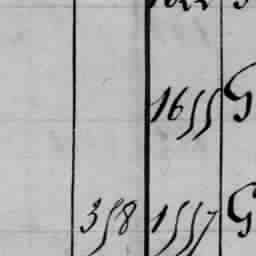 1655 G
358 1557 G